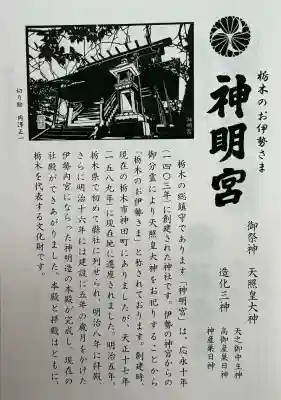 栃木のお伊勢さま
神明宮
御祭神　天照皇大神
造化三神
天之御中主神
高御産巣日神
神産巣日神
神明宮
切り絵　両澤正一
栃木の総鎮守であります「神明宮」は、応永十年
（一四〇三年）に創建された神社です。伊勢の神宮からの
御分霊により天照皇大神をお祀りすることから
「栃木のお伊勢さま」と称されております。創建時、
現在の栃木市神田町にありましたが、天正十七年
（一五八九年）に現在地に遷座されました。明治五年、
栃木県で初めて縣社に列せられ、明治八年に拝殿、
さらに明治十六年には建設に五年の歳月をかけた
伊勢内宮にならった神明造の本殿が完成し、現在の
社殿ができあがりました。本殿と拝殿はともに、
栃木を代表する文化財です。